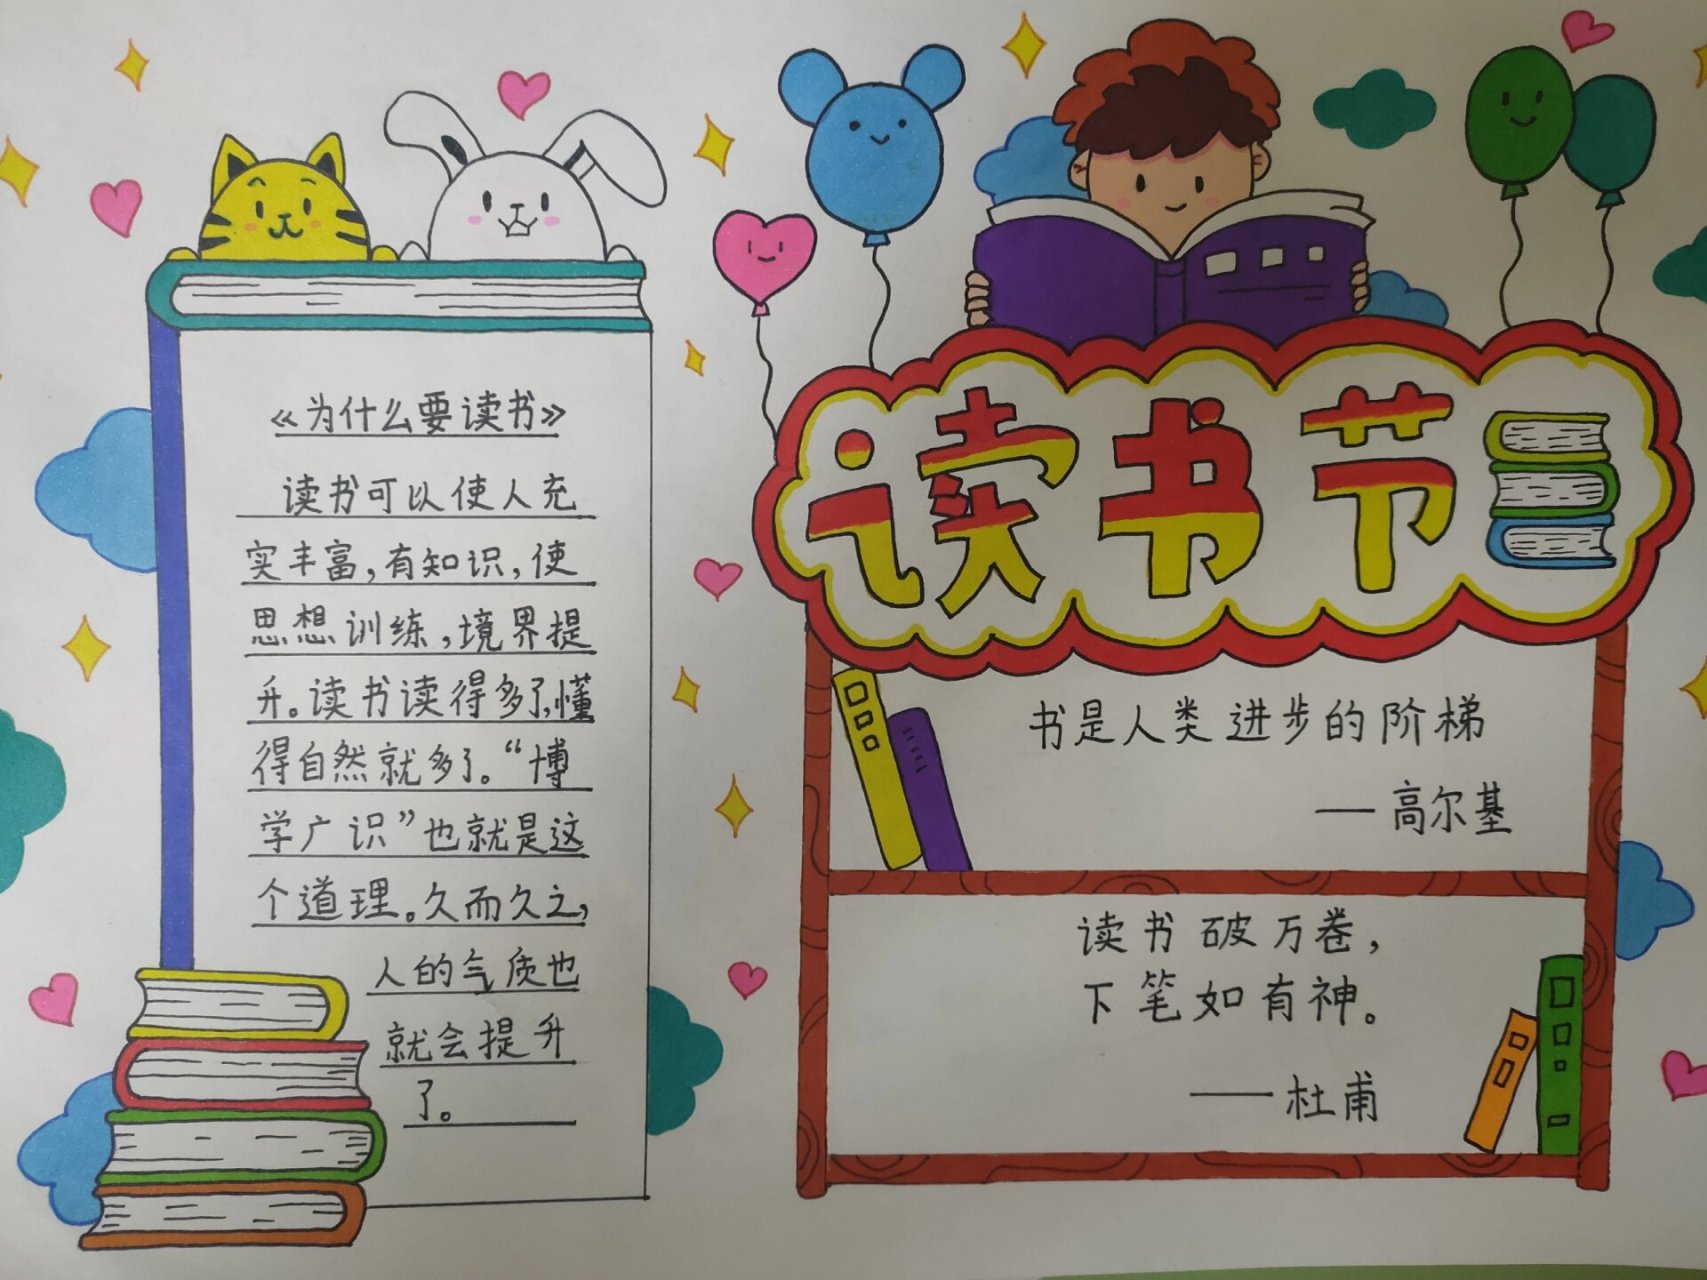 《为什么要读书》
读书可以使人充
实丰富,有知识,使
思想训练,境界提
升。读书读得多了,懂
得自然就多了。“博
学广识”也就是这
个道理。久而久之,
人的气质也
就会提升
了。
读书节
书是人类进步的阶梯
——高尔基
读书破万卷,
下笔如有神。
——杜甫